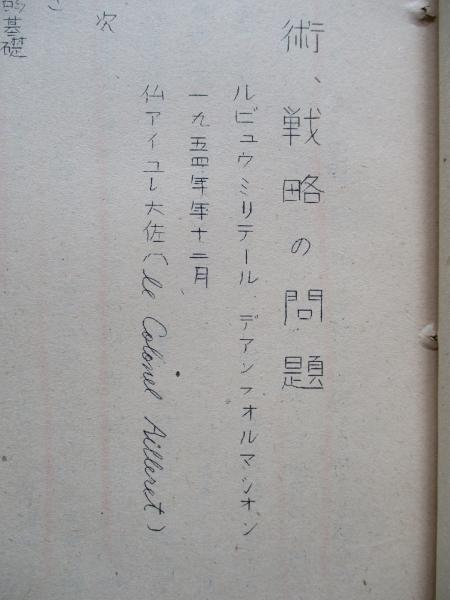 術、戦略の問題
ルビュウミリテール デアンフオルマシオン
一九五四年年十二月
仏アイユレ大佐(le Colonel Ailleret)
次
的基礎